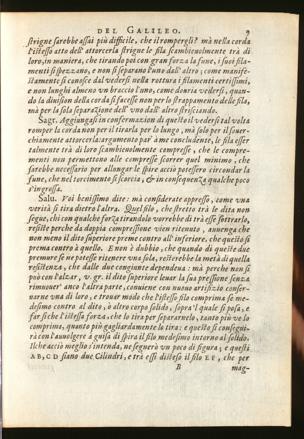 DEL GALILEO. 9
strigne sarebbe assai più difficile, che il rompergli? mà nella corda
l'istesso atto dell' attorcerla strigne le fila scambieuolmente trà di
loro, in maniera, che tirando poi con gran forza la fune, i suoi fila-
menti si spezzano, e non si separano l'uno dall' altro; come manife-
stamente si conosce dal vedersi nella rottura i filamenti cortissimi,
e non lunghi almeno vn braccio l'uno, come douria vedersi, quan-
do la diuision della corda si facesse non per lo strappamento delle fila,
mà per la sola separazione dell' vno dall' altro strisciando.
Sagr. Aggiungasi in confermazion di questo il vedersi tal volta
romper la corda non per il tirarla per lo lungo, mà solo per il souer-
chiamente attorcerla: argumento par' à me concludente, le fila esser
talmente trà di loro scambieuolmente compresse, che le compre-
menti non permettono alle compresse scorrer quel minimo, che
sarebbe necessario per allungar le spire acciò potessero circondar la
fune, che nel torcimento si scorcia, & in conseguenza qualche poco
s'ingrossa.
Salu. Voi benissimo dite: mà considerate appresso, come vna
verità si tira dietro l'altra. Quel filo, che stretto trà le dita non
segue, chi con qualche forza tirandolo vorrebbe di trà esse sottrarlo,
resiste perche da doppia compressione vien ritenuto, auuenga che
non meno il dito superiore preme contro all' inferiore, che questo si
prema contro à quello. E non è dubbio, che quando di queste due
premure se ne potesse ritenere vna sola, resterebbe la metà di quella
resistenza, che dalle due congiunte dependeua: mà perche non si
può con l'alzar, v. gr. il dito superiore leuar la sua pressione senza
rimuouer' anco l'altra parte, conuiene con nuouo artifizio conser-
uarne vna di loro, e trouar modo che l'istesso filo comprima se me-
desimo contro al dito, ò altro corpo solido, sopra 'l quale si posa, e
far sì che l'istessa forza, che lo tira per separarnelo, tanto più ve lo
comprima, quanto più gagliardamente lo tira: e questo si consegui-
rà con l'auuolgere à guisa di spira il filo medesimo intorno al solido.
Ilche acciò meglio s'intenda, ne segnerò vn poco di figura; e questi
AB, CD siano due Cilindri, e trà essi disteso il filo EF, che per
B mag-